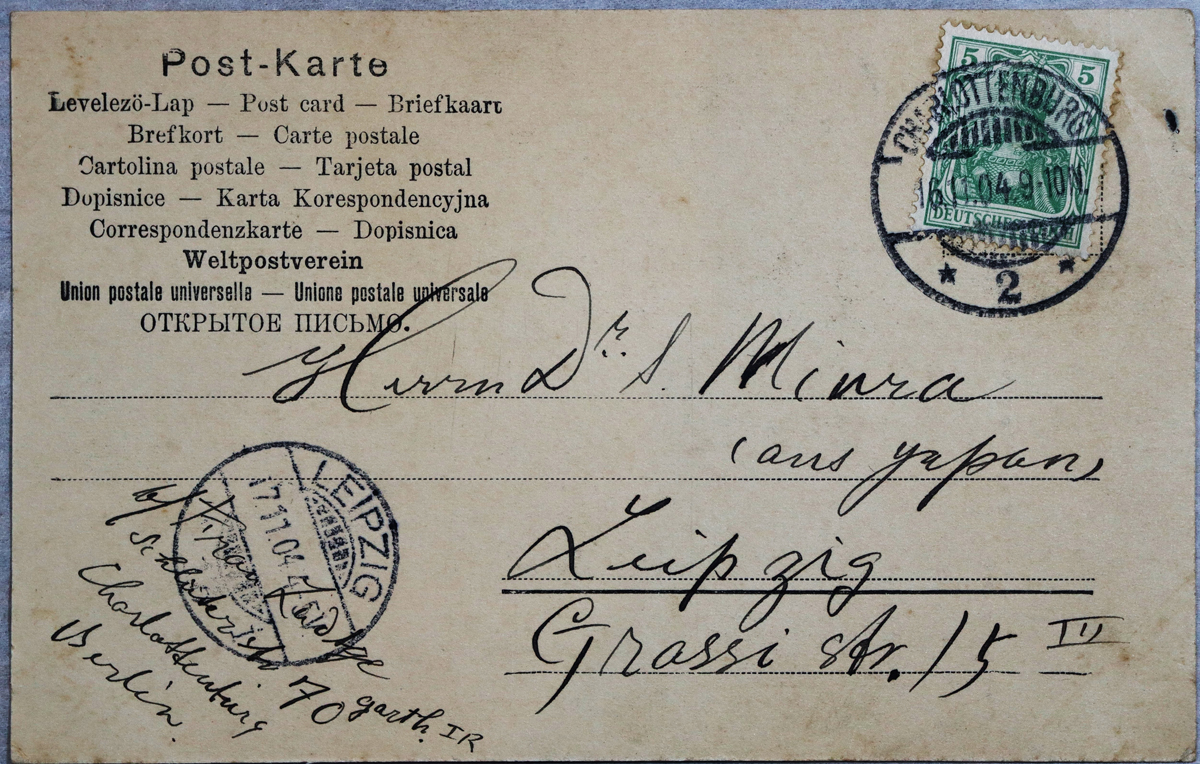 Post-Karte
Levelezö-Lap — Post card — Briefkaart
Brefkort — Carte postale
Cartolina postale — Tarjeta postal
Dopisnice — Karta Korespondencyjna
Correspondenzkarte — Dopisnica
Weltpostverein
Union postale universelle — Unione postale universale
ОТКРЫТОЕ ПИСЬМО.
5 5
DEUTSCHES REICH
CHARLOTTENBURG
16.11.04.9-10N.
* 2 *
Herrn Dr. S. Miura
(aus Japan)
Leipzig
Grassi str. 15 III
LEIPZIG
17.11.04
b/ Frau
Charlottenburg
70 garth. IR
Berlin.